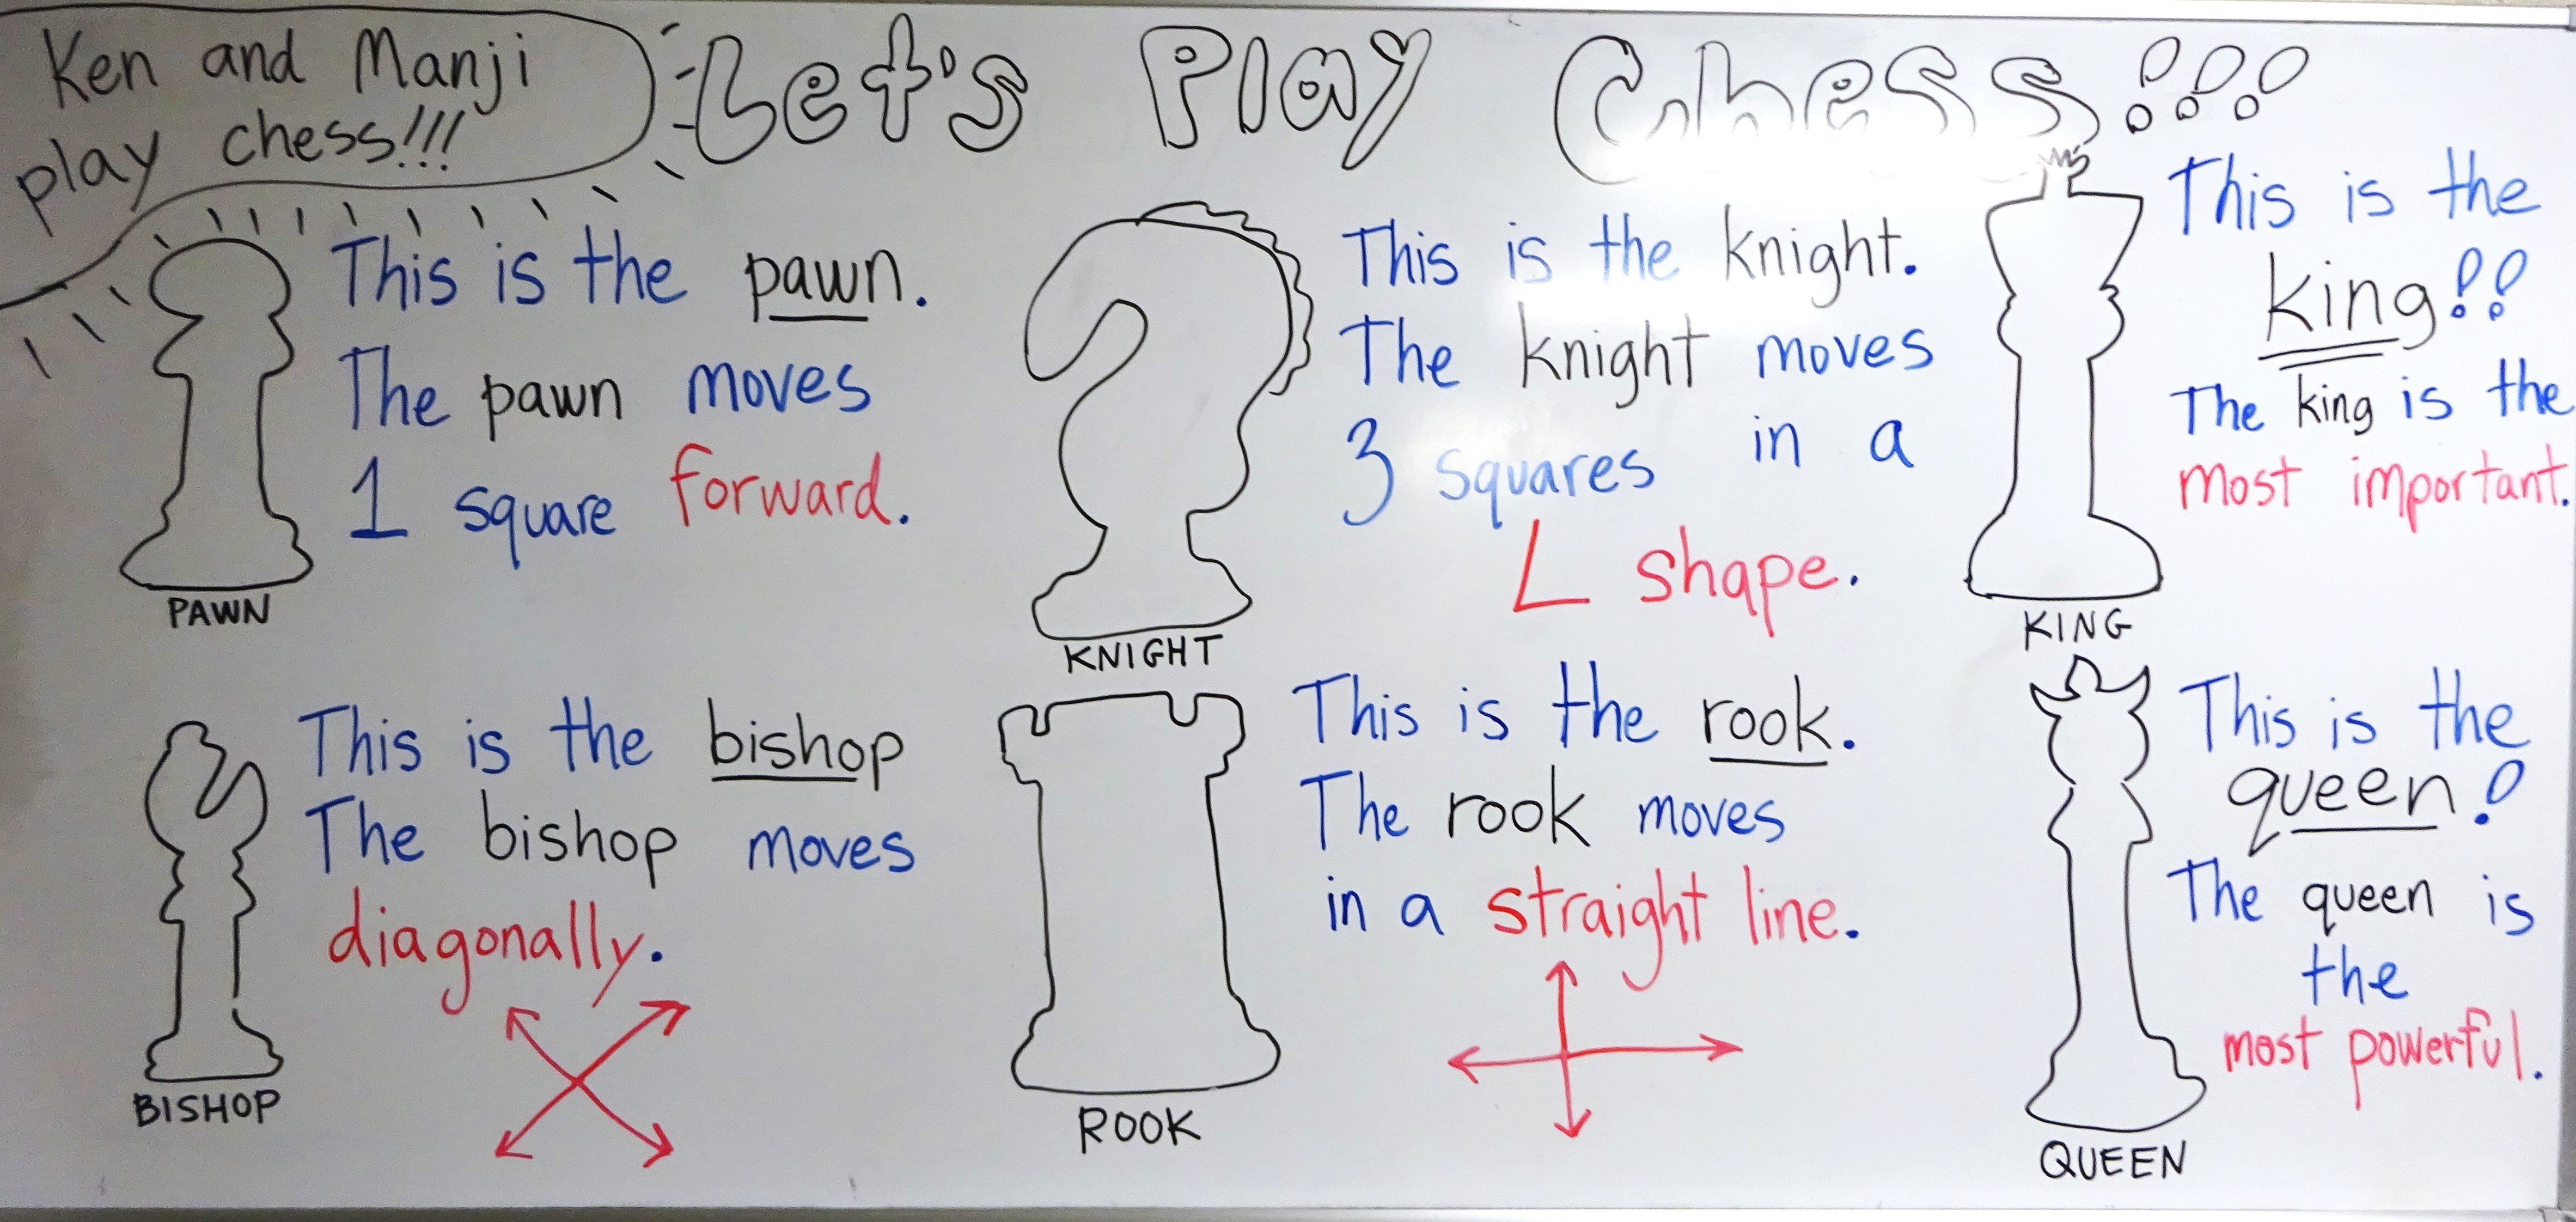 Ken and Manji
play chess!!!
Let's Play Chess!!!
This is the pawn.
The pawn moves
1 square forward.
PAWN
This is the knight.
The knight moves
3 squares in a
L shape.
KNIGHT
This is the
king!!
The king is the
most important.
KING
This is the bishop
The bishop moves
diagonally.
BISHOP
This is the rook.
The rook moves
in a straight line.
ROOK
This is the
queen!
The queen is
the
most powerful.
QUEEN